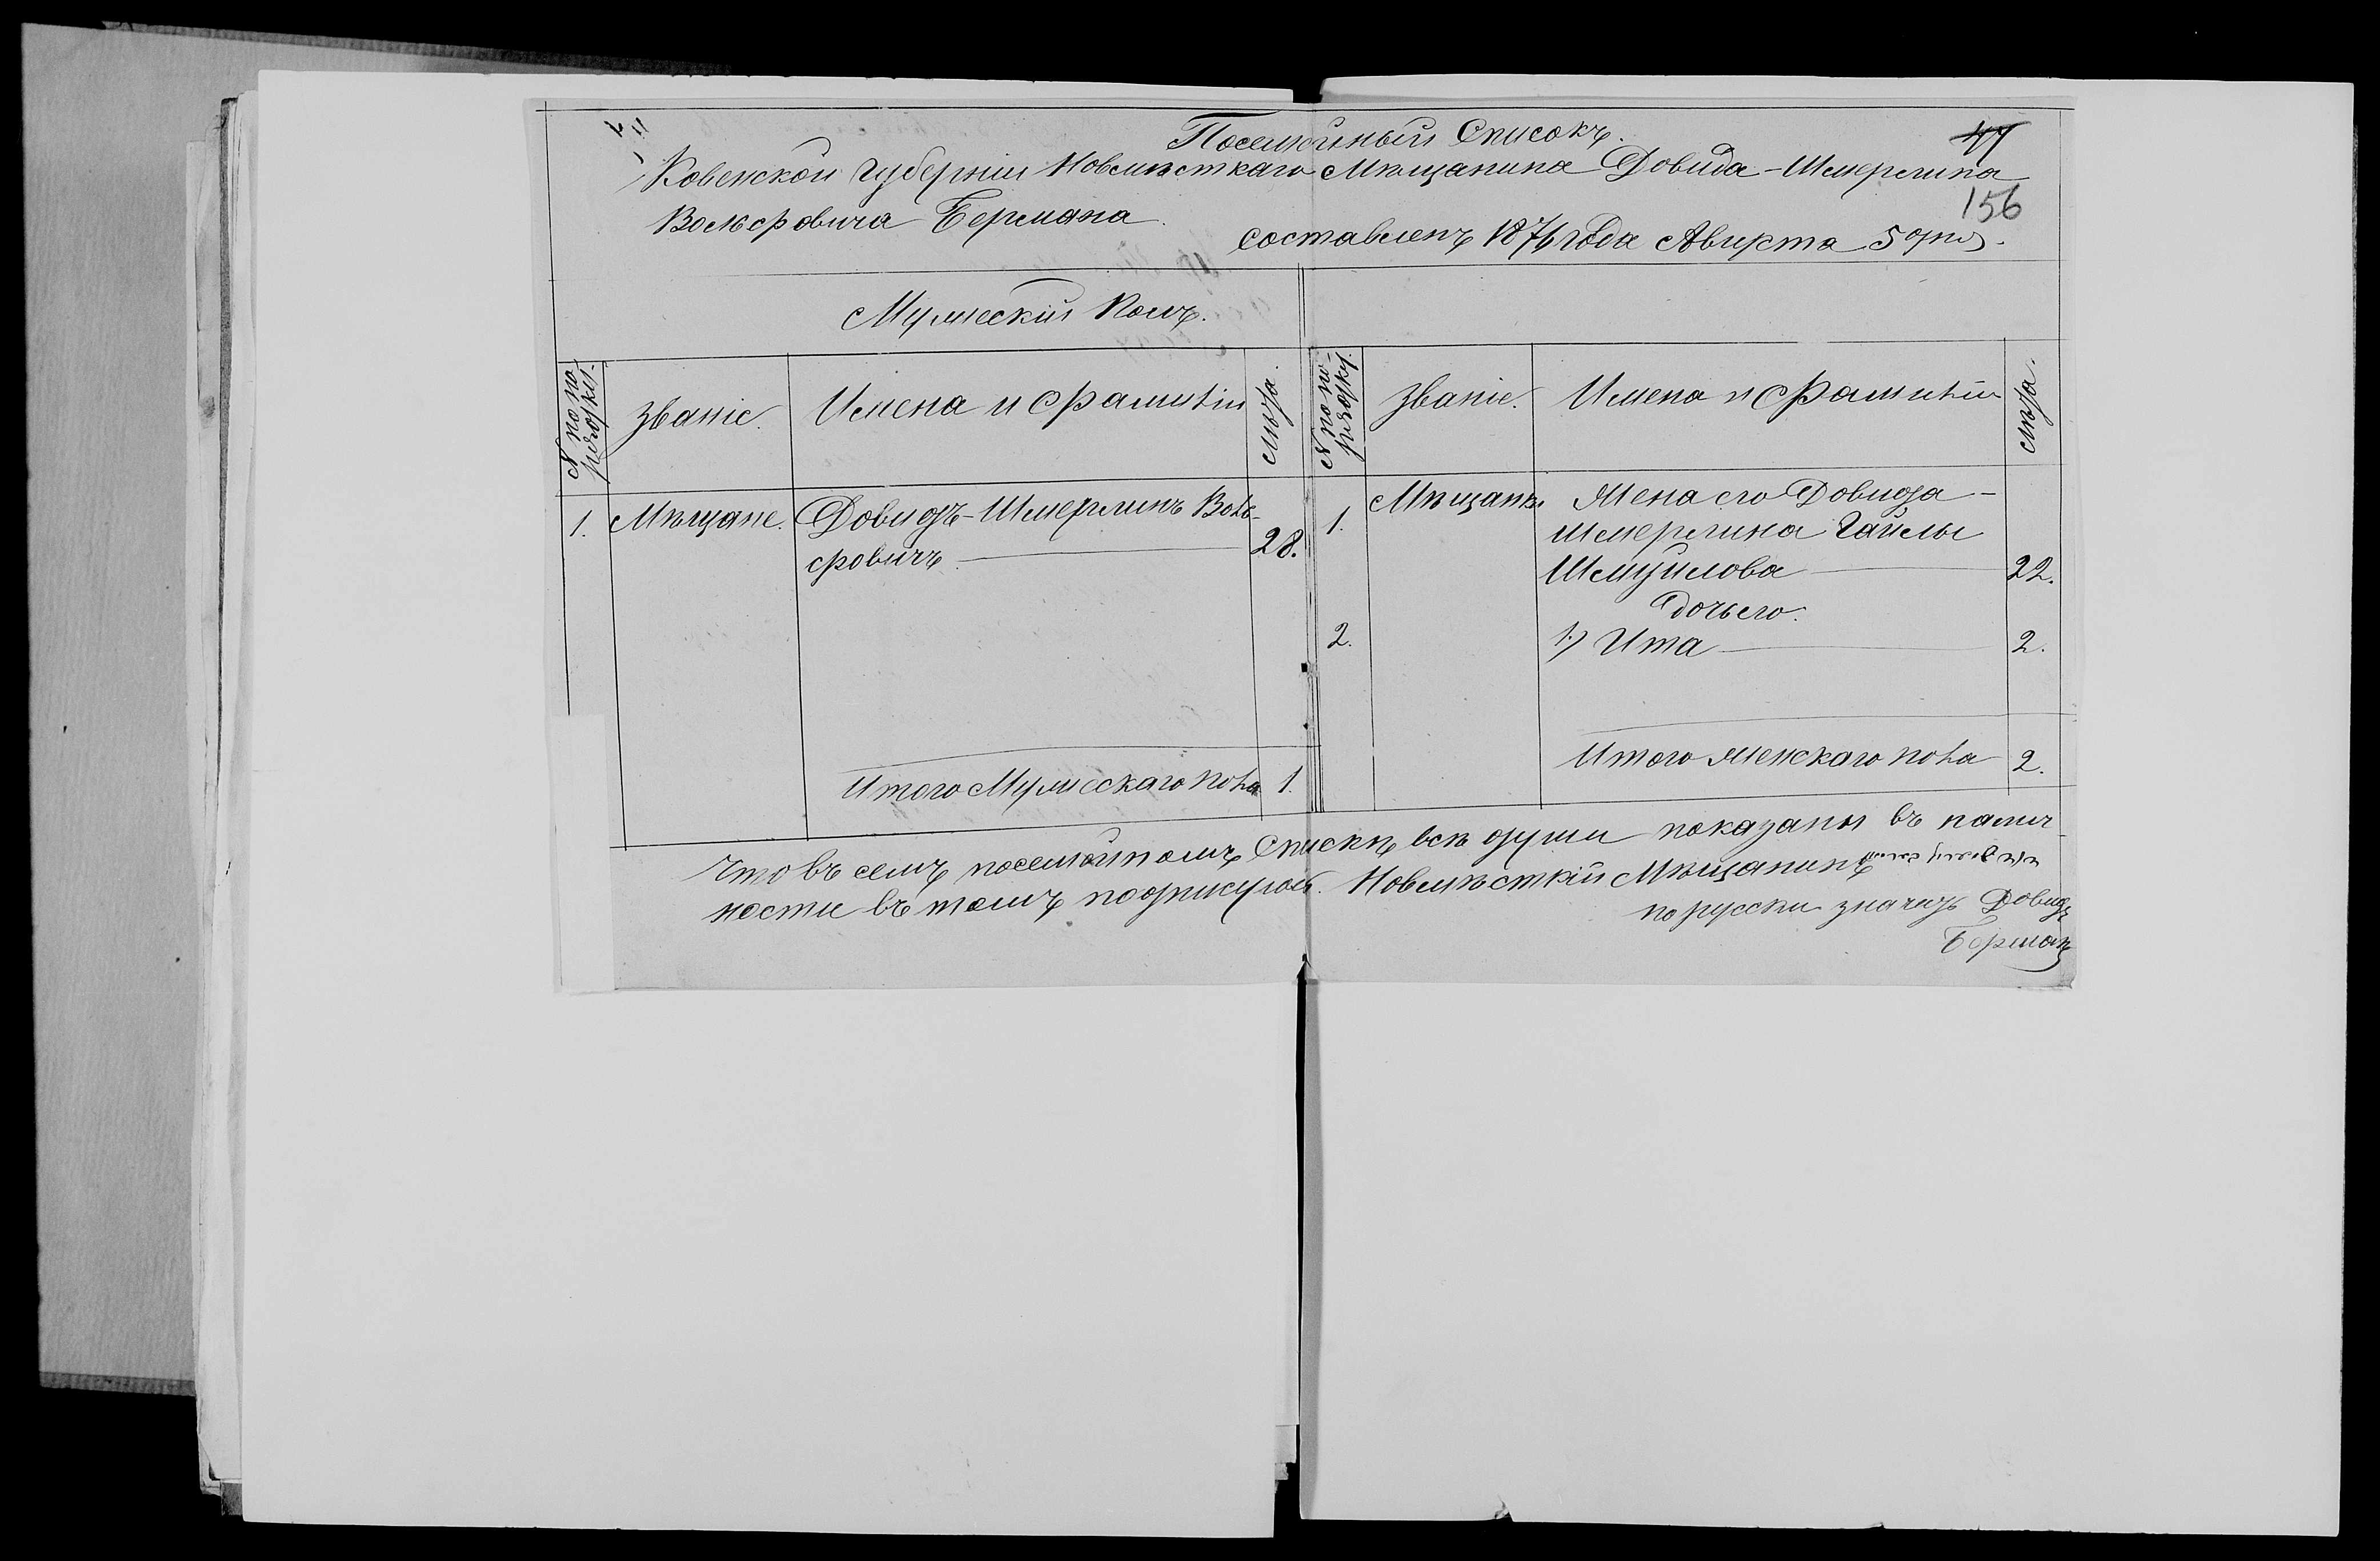 Посемейный Списокъ.
47
Ковенской Губерніи Новомѣсткаго Мѣщанина Довида-Шмерлина
156
Вольфовича Бермана.
составленъ 1874 года Августа 5 дня.
Мужескій Полъ.
N по порядку. Званіе. Имена и Фамиліи Лѣта.
N по порядку. Званіе. Имена и Фамиліи Лѣта.
1. Мѣщане. Довидъ-Шмерлинъ Воль-
фовичъ 28.
1. Мѣщане Жена его Довида-
Шмерлина Гайлы
Шмуйлова 22.
Дочь его:
2. 1) Ита 2.
Итого Мужескаго пола 1.
Итого женскаго пола 2.
Что въ семъ посемейномъ Спискѣ всѣ души показаны въ налич-
ности въ томъ подписуюсь. Новомѣсткій Мѣщанинъ
по русски значитъ Довидъ
Берманъ